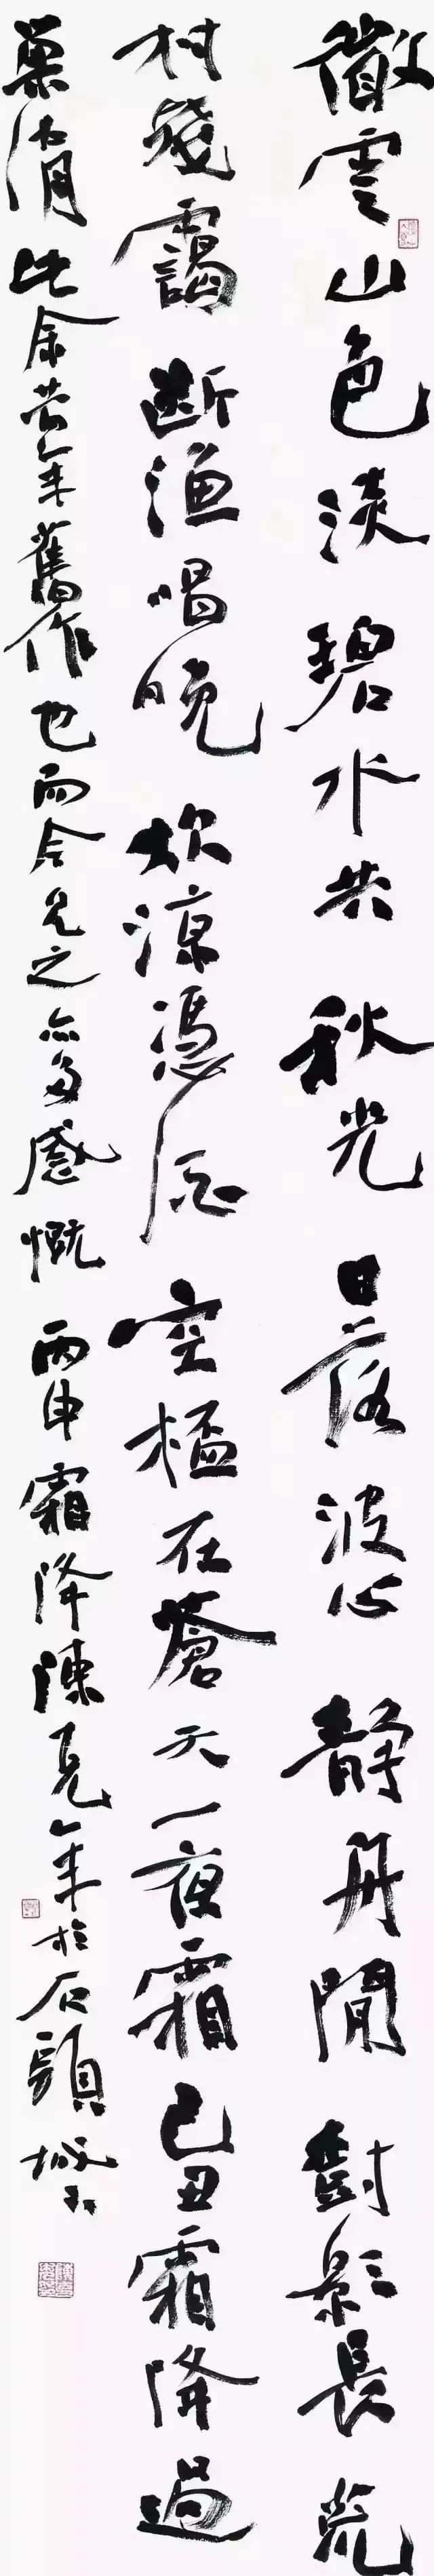 微雲山色淡碧水共秋光日落波心靜舟閒樹影長荒
村殘靄斷漁唱晚炊涼憑酒空榼在蒼天一夜霜己丑霜降過
巢湖此余昔年舊作也而今見之亦多感慨丙申霜降陳克年於石頭城下